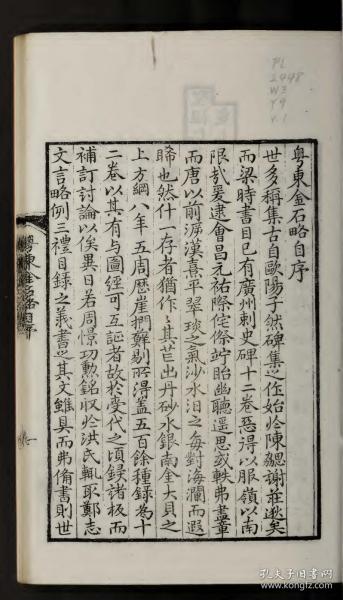 PL
2448
W3
Y9
v.1
粵東金石略自序
世多稱集古自歐陽子然碑集之作始於陳勰謝莊逖矣
而梁時書目已有廣州刺史碑十二卷惡得以服嶺以南
限哉爰逮會昌元祐際侘傺竚眙幽聽遥思或軼弗盡纂
而唐以前淚漢熹平翠琰之氣沙水汨之每對海瀾而遐
睎也然什一存者猶作作其芒出丹砂水銀南金大貝之
上方綱八年五周歷崖捫蘚剔所得蓋五百餘種録為十
二卷以其有与圖經可互証者故於受代之頃録諸板而
補訂討論以俟異日若周憬功勲銘収於洪氏輒取鄭志
文言略例三禮目録之義書之其文雖具而弗脩書則世
粵東金石略自序
孔夫子旧书网